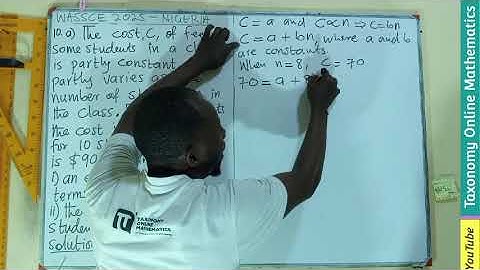 WASSCE 2025 - NIGERIA
10.a) The cost, C, of fee
some students in a cl
is partly constant
partly varies as
number of st in
the class.
the cost
for 10 s
is $90
i) an e
term
ii) the
studen
solution
C = a and C∝n ⇒ C=bn
C = a + bn, where a and b
are constants.
When n=8, C = 70
70 = a + 8
TAXONOMY
ONLINE
MATHEMATICS
Taxonomy Online Mathematics
YouTube